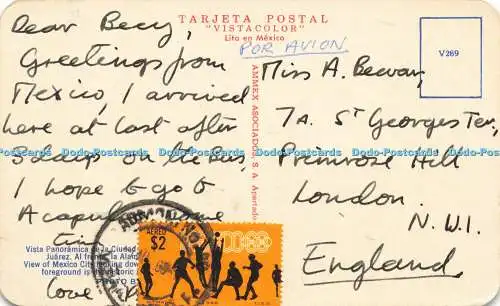 TARJETA POSTAL
"VISTACOLOR"
Lito en México
POR AVION
V269
Dear Becy,
Greetings from
Mexico, I arrived
here at last after
5 days on the Bus,
I hope to go to
Acapulco some
time
Love
Miss A. Bewar,
7A. St Georges Ter.
Primrose Hill
London.
N.W.1.
England
AMMEX ASOCIADOS, S. A. Apartado
Vista Panorámica de la Ciudad
Juárez. Al frente la Alam
View of Mexico City looking
foreground is historic
PHOTO BY
AEREO
$2
Dodo-Postcards Dodo-Postcards Dodo-Postcards Dodo-Postcards